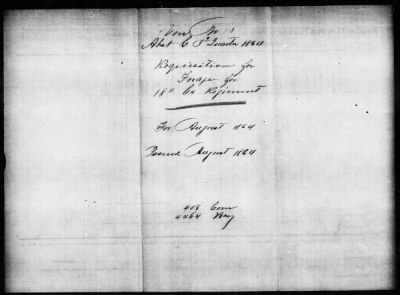 Abst C 3d Quarter 1864
Requisition for
Forage for
Regiment
For August 1864
Issued August 1864
408 Corn
4464 Hay